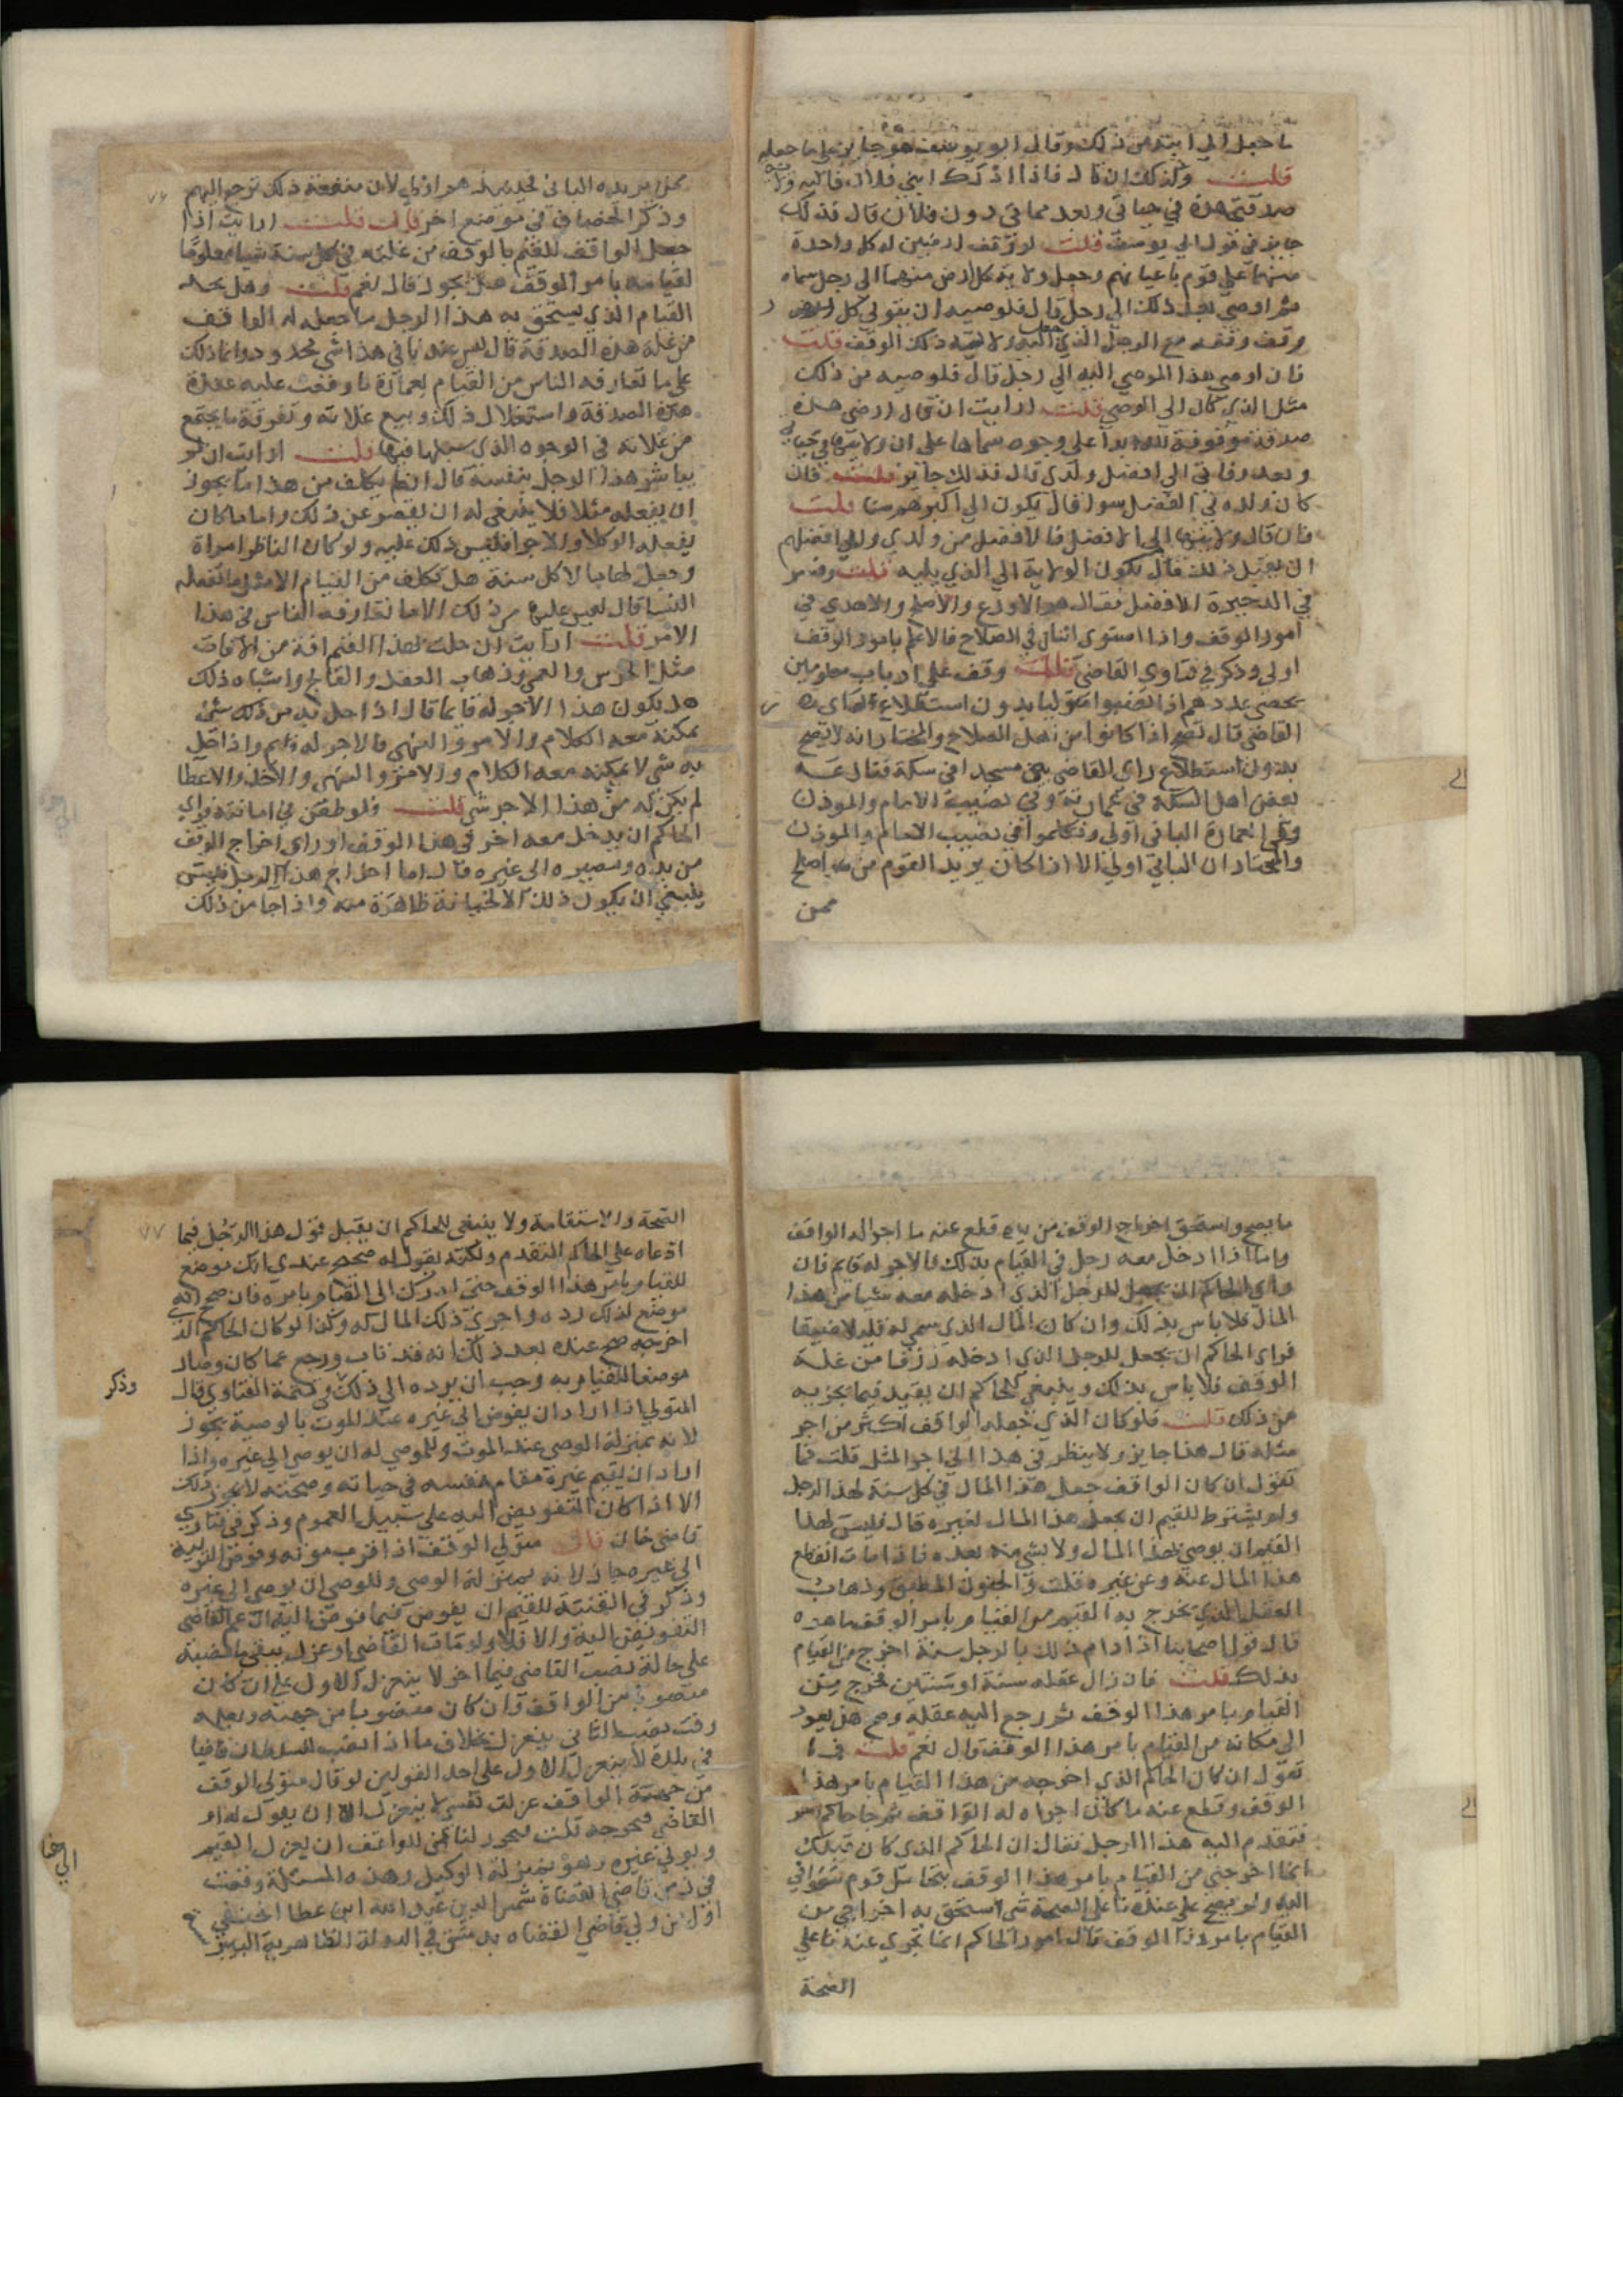 ما جعل الي ابنته من ذلك وقال ابو يوسف هو جايز على ما جعله
قلت وكذلك ان قال فاذا ادرك ابني فلان فاليه ولاية
صدقتي هذه في حياتي وبعد مماتي دون فلان قال فذلك
جايز في قول ابي يوسف قلت لو وقف ارضين كل واحدة
منهما على قوم باعيانهم وجعل ولاية كل ارض منهما الى رجل سماه
ثم اوصى بعد ذلك الى رجل قال فلوصيه ان يتولى كل ارض
وقف وقفه مع الرجل الذي جعل اليه ولاية ذلك الوقف قلت
فان اوصى هذا الموصي اليه الى رجل قال فلوصيه من ذلك
مثل الذي كان الى الوصي قلت ارايت ان قال ارضي هذه
صدقة موقوفة لله ابدا على وجوه سماها على ان ولايتها في حياتي
وبعد وفاتي الى افضل ولدي قال فذلك جايز قلت فان
كان ولده في الفضل سوا قال يكون الى اكبرهم سنا قلت
فان قال ولايتها الى الافضل فالافضل من ولدي وابى افضلهم
ان يقبل ذلك قال يكون الولاية الى الذي يليه قلت وفسر
في الذخيرة الافضل فقال هو الاورع والاصلح والاهدي في
امور الوقف واذا استوى اثنان في الصلاح فالاعلم بامور الوقف
اولى وذكر في فتاوي القاضي قلت وقف على ارباب معلومين
يحصى عددهم اذا نصبوا متوليا بدون استطلاع راي
القاضي قال تصح اذا كانوا من اهل الصلاح والمختار انه لا يصح
بدون استطلاع راي القاضي بنى مسجدا في سكة فقال
بعض اهل السكة في عمارته وفي نصيب الامام والموذن
وفي العمارة الباني اولى وتكلموا في نصيب الامام والموذن
والمختار ان الباني اولى الا اذا كان يريد القوم من هو اصلح
ممن
٧٦
ممن يريده الباني فحينئذ هو اولى لان منفعة ذلك ترجع اليهم
وذكر الخصاف في موضع اخر قال قلت ارايت اذا
جعل الواقف للقيم بالوقف من غلته في كل سنة شيا معلوما
لقيامه بامر الوقف هل يجوز قال نعم قلت وهل يحد
القيام الذي يستحق به هذا الرجل ما جعله له الواقف
من غلة هذه الصدقة قال ليس عندنا في هذا شي محدود وانما ذلك
على ما تعارفه الناس من القيام بعمارة ما وقعت عليه عقدة
هذه الصدقة واستغلال ذلك وبيع غلاته وتفرقة ما يجتمع
من غلاته في الوجوه الذي سبلها فيها قلت ارايت ان لم
يباشر هذا الرجل بنفسه قال انما يكلف من هذا ما يجوز
ان يفعله مثله فلا ينبغي له ان يقصر عن ذلك واما ما كان
يفعله الوكلا والاجرا فليس ذلك عليه ولو كان الناظر امراة
وجعل لها مالا كل سنة هل تكلف من القيام الا مثل ما تفعله
النسا قال ليس عليها من ذلك الا ما تعارفه الناس في هذا
الامر قلت ارايت ان حلت بهذا القيم افة من الافات
مثل الخرس والعمى وذهاب العقل والفالج واشباه ذلك
هل يكون هذا الاجر له قايما قال اذا حل به من ذلك شي
يمكنه معه الكلام والامر والنهي فالاجر له قايم واذا حل
به شي لا يمكنه معه الكلام والامر والنهي والاخذ والاعطا
لم يكن له من هذا الاجر شي قلت فلو طعن في امانته فراى
الحاكم ان يدخل معه اخر في هذا الوقف او راى اخراج الوقف
من يده ومصيره الى غيره قال اما اخراج هذا الرجل فليس
ينبغي ان يكون ذلك الا لخيانة ظاهرة منه واذا جا من ذلك
ما يصح واستحق اخراج الوقف من يده قطع عنه ما اجراه الواقف
واما اذا ادخل معه رجل في القيام بذلك فالاجر له قايم فان
راى الحاكم ان يجعل للرجل الذي ادخله معه شيا من هذا
المال فلا باس بذلك وان كان المال الذي سمي له قليلا ضيقا
فراى الحاكم ان يجعل للرجل الذي ادخله رزقا من غلة
الوقف فلا باس بذلك وينبغي للحاكم ان يقتصد فيما يجريه
من ذلك قلت فلو كان الذي جعله الواقف اكثر من اجر
مثله قال هذا جايز ولا ينظر في هذا الى اجر المثل قلت فما
تقول ان كان الواقف جعل هذا المال في كل سنة لهذا الرجل
ولم يشترط للقيم ان يجعل هذا المال لغيره قال فليس لهذا
القيم ان يوصي بهذا المال ولا بشي منه بعده فاذا مات انقطع
هذا المال عنه وعن غيره قلت والجنون المطبق وذهاب
العقل الذي يخرج به القيم من القيام بامر الوقف ما هو
قال قول اصحابنا اذا دام ذلك بالرجل سنة اخرج من القيام
بذلك قلت فان زال عقله سنة او سنتين فخرج من
القيام بامر هذا الوقف ثم رجع اليه عقله وصح هل يعود
الى مكانه من القيام بامر هذا الوقف قال نعم قلت فما
تقول ان كان الحاكم الذي اخرجه من هذا القيام بامر هذا
الوقف وقطع عنه ما كان اجراه له الواقف ثم جا حاكم اخر
فتقدم اليه هذا الرجل فقال ان الحاكم الذي كان قبلك
انما اخرجني من القيام بامر هذا الوقف بتحامل قوم سعوا بي
اليه ولم يصح علي عنده شي استحق به اخراجي من
القيام بامر هذا الوقف قال امور الحاكم انما تجري عندنا على
الصحة
٧٧
الصحة والاستقامة ولا ينبغي للحاكم ان يقبل قول هذا الرجل فيما
ادعاه على الحاكم المتقدم ولكنه يقول له صحح عندي انك موضع
للقيام بامر هذا الوقف حتى اردك الى القيام بامره فان صح انه
موضع لذلك رده واجرى ذلك المال له وكذا لو كان الحاكم الذي
اخرجه صح عنده بعد ذلك انه قد تاب ورجع عما كان وصار
موضعا للقيام به وجب ان يرده الى ذلك وفي تتمة الفتاوي قال
وذكر
المتولي اذا اراد ان يفوض الى غيره عند الموت بالوصية يجوز
لانه بمنزلة الوصي عند الموت وللموصى له ان يوصي الى غيره واذا
اراد ان يقيم غيره مقام نفسه في حياته وصحته لا يجوز ذلك
الا اذا كان التفويض اليه على سبيل العموم وذكر في فتاوي
قاضي خان قال متولي الوقف اذا قرب موته وفوض التولية
الى غيره جاز لانه بمنزلة الوصي وللوصي ان يوصي الى غيره
وذكر في القنية للقيم ان يفوض فيما فوض اليه ان عمم القاضي
التفويض اليه والا فلا ولو مات القاضي او عزل يبقى ما نصبه
على حاله نصب القاضي قيما اخر لا ينعزل الاول ان كان
منصوبا من الواقف وان كان منصوبا من جهته ويعلمه
وقت نصب الثاني ينعزل بخلاف ما اذا نصب السلطان قاضيا
في بلدة لا ينعزل الاول على احد القولين لو قال متولي الوقف
من جهة الواقف عزلت نفسي لا ينعزل الا ان يقول له او
القاضي فيخرجه قلت فيحرر لنا من للواقف ان يعزل القيم
ويولي غيره وهو بمنزلة الوكيل وهذه المسئلة وقعت
الى هنا
في زمن قاضي القضاة شمس الدين عبد الله ابن عطا الحنفي
اول من ولي قاضي القضاه بدمشق في الدولة الظاهرية